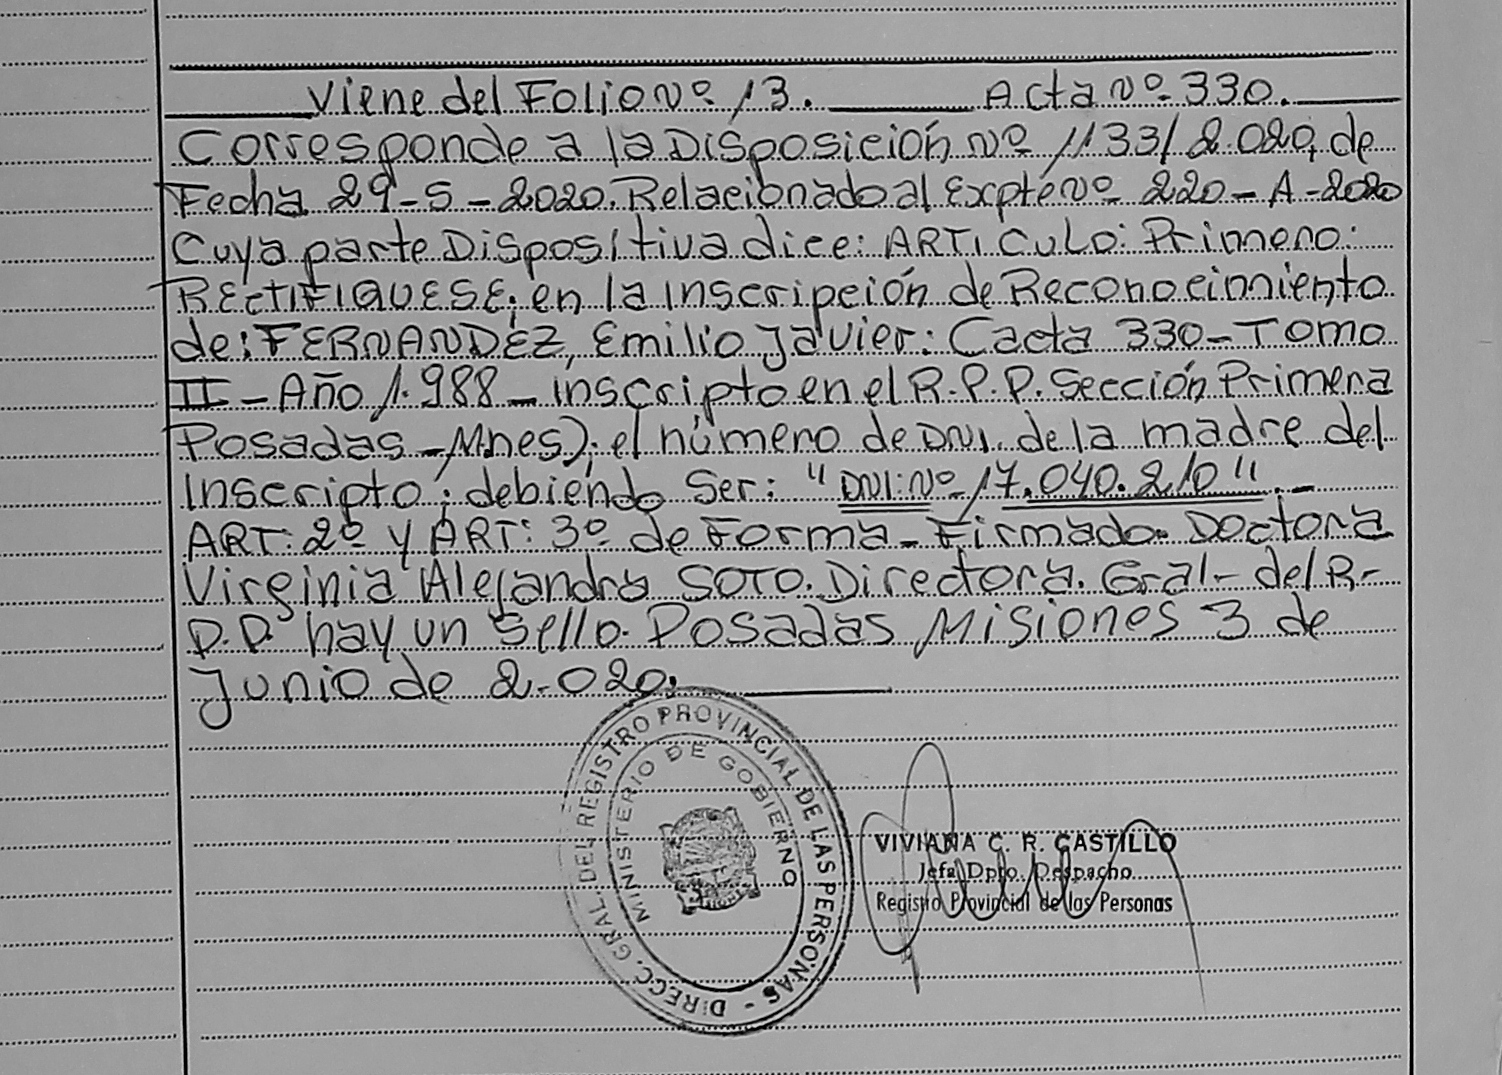 Viene del Folio Nº 13. Acta Nº 330.
Corresponde a la Disposición Nº 1133/2.020, de
Fecha 29-5-2020. Relacionado al Expte Nº 220-A-2020
Cuya parte Dispositiva dice: ARTICULO: Primero:
RECTIFIQUESE; en la inscripción de Reconocimiento
de: FERNANDEZ, Emilio Javier: (acta 330-Tomo
II-Año 1.988-inscripto en el R.P.P. Sección Primera
Posadas-Mnes); el número de DNI. de la madre del
Inscripto; debiendo Ser: "DNI: Nº 17.040.210".-
ART: 2º y ART: 3º de Forma-Firmado. Doctora
Virginia Alejandra SOTO. Directora. Gral- del R-
P.P. hay un Sello. Posadas Misiones 3 de
Junio de 2.020.
DIRECC. GRAL. DEL REGISTRO PROVINCIAL DE LAS PERSONAS -
MINISTERIO DE GOBIERNO
VIVIANA C. R. CASTILLO
Jefa Dpto. Despacho
Registro Provincial de las Personas